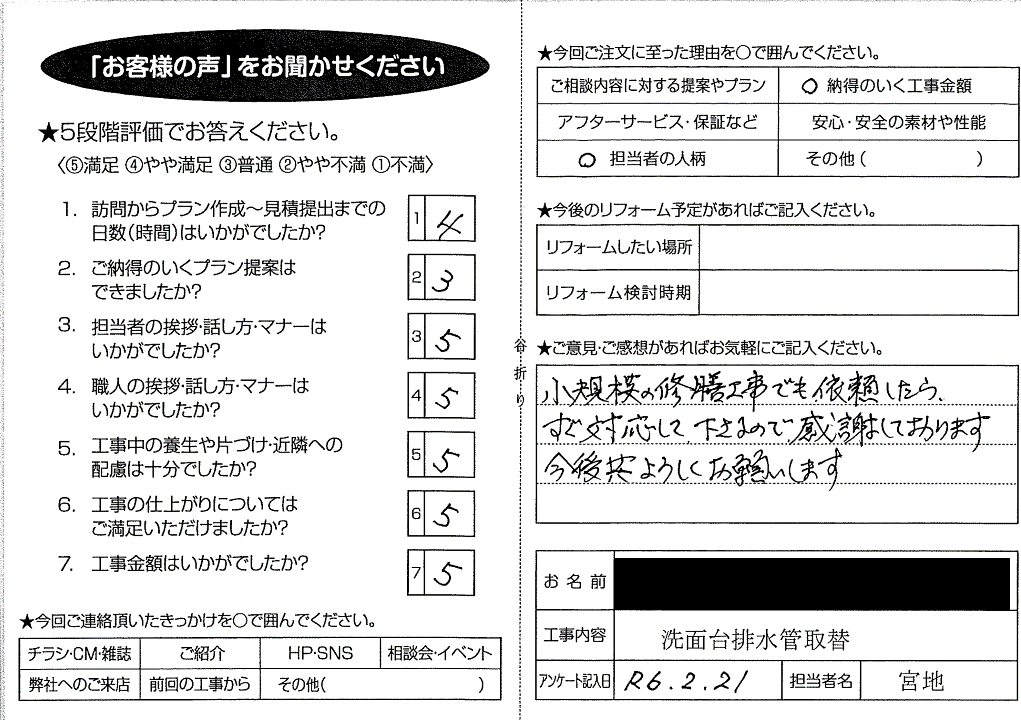 「お客様の声」をお聞かせください
★5段階評価でお答えください。
〈⑤満足 ④やや満足 ③普通 ②やや不満 ①不満〉
1. 訪問からプラン作成～見積提出までの
日数(時間)はいかがでしたか?
1 4
2. ご納得のいくプラン提案は
できましたか?
2 3
3. 担当者の挨拶・話し方・マナーは
いかがでしたか?
3 5
4. 職人の挨拶・話し方・マナーは
いかがでしたか?
4 5
5. 工事中の養生や片づけ・近隣への
配慮は十分でしたか?
5 5
6. 工事の仕上がりについては
ご満足いただけましたか?
6 5
7. 工事金額はいかがでしたか?
7 5
★今回ご連絡頂いたきっかけを○で囲んでください。
チラシ・CM・雑誌 ご紹介 HP・SNS 相談会・イベント
弊社へのご来店 前回の工事から その他( )
谷折り
★今回ご注文に至った理由を○で囲んでください。
ご相談内容に対する提案やプラン ○ 納得のいく工事金額
アフターサービス・保証など 安心・安全の素材や性能
○ 担当者の人柄 その他( )
★今後のリフォーム予定があればご記入ください。
リフォームしたい場所
リフォーム検討時期
★ご意見・ご感想があればお気軽にご記入ください。
小規模の修膳工事でも依頼したら、
すぐ対応して下さるので、感謝しております
今後共よろしくお願いします
お名前
工事内容 洗面台排水管取替
アンケート記入日 R6.2.21 担当者名 宮地